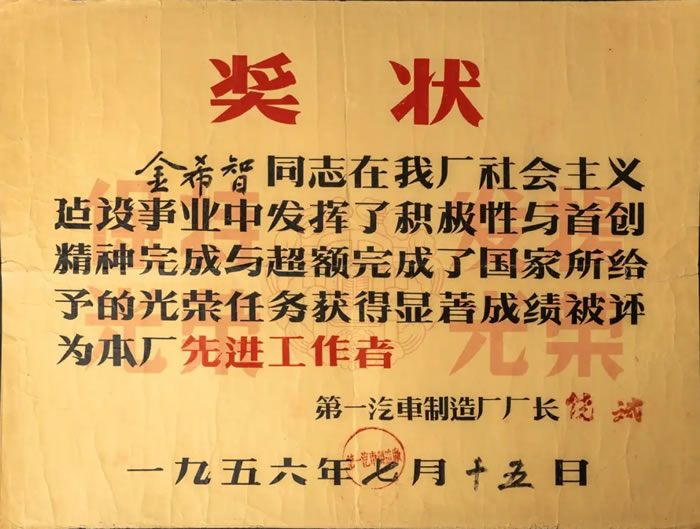 奖状
金希智同志在我厂社会主义
建设事业中发挥了积极性与首创
精神完成与超额完成了国家所给
予的光荣任务获得显著成绩被评
为本厂先进工作者
第一汽車制造厂厂长饶斌
一九五六年七月十五日
保持 发揚
光荣 光荣